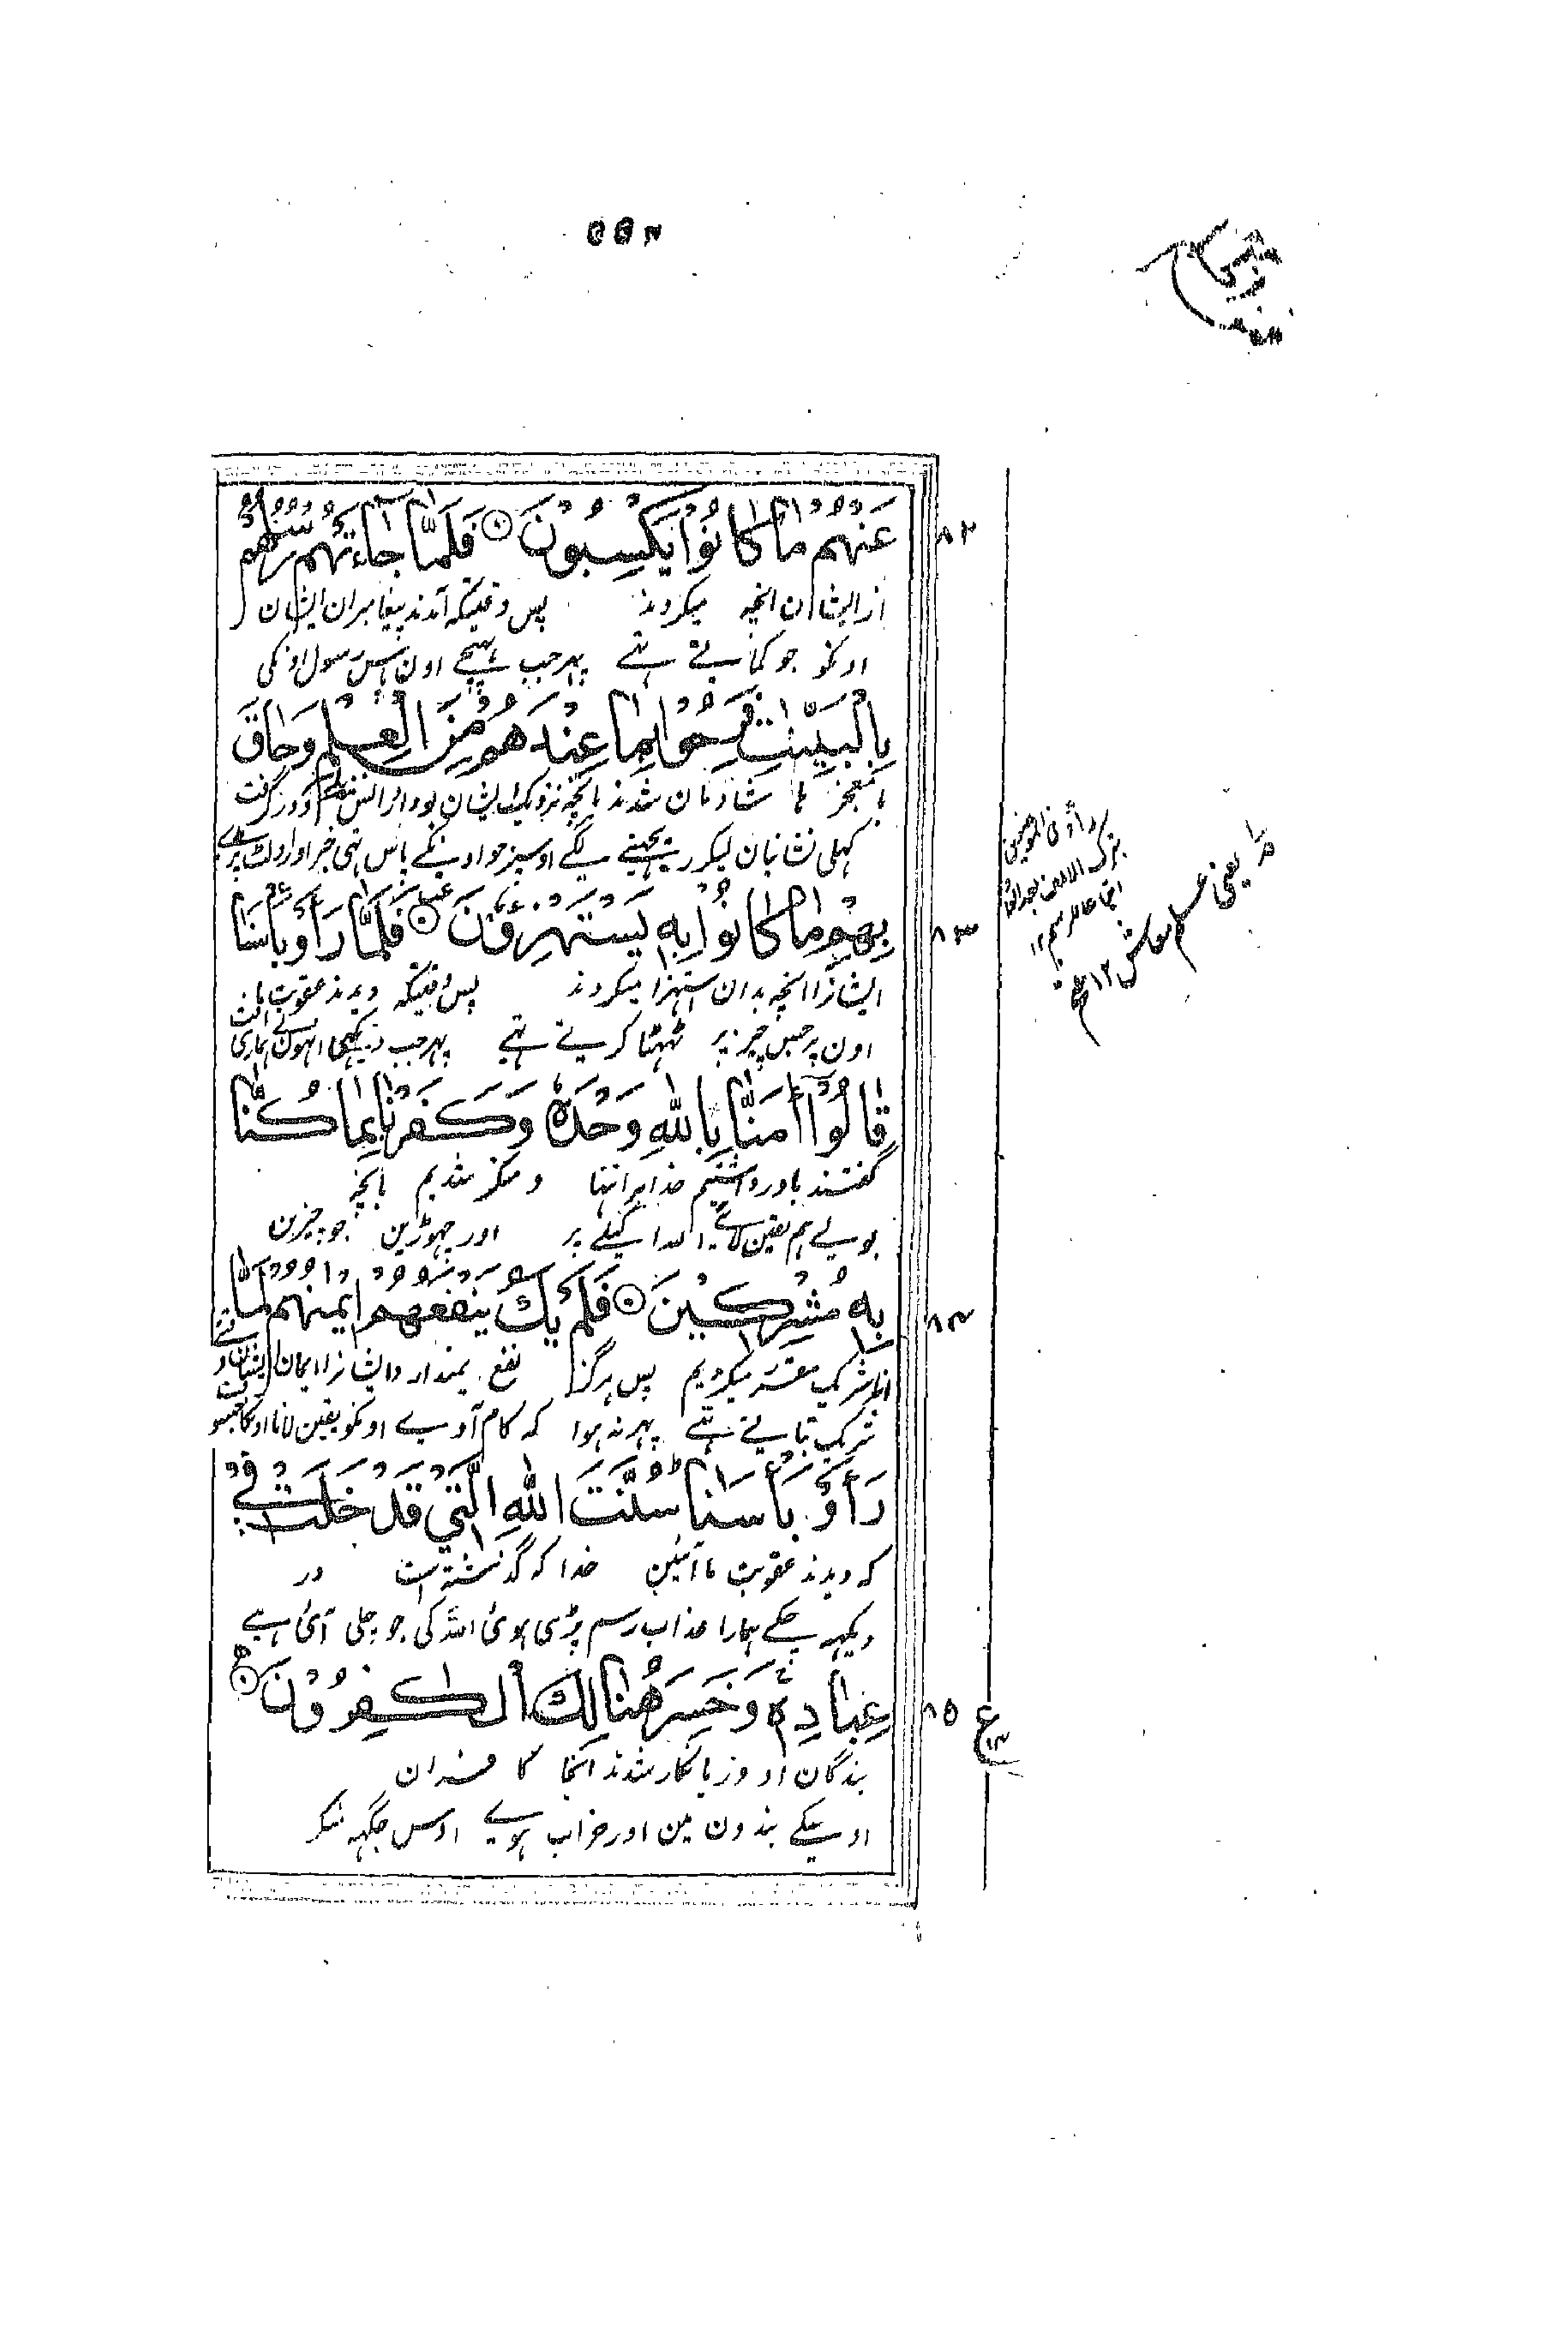 ۵۵۴
عَنْهُمْ مَا كَانُوْا يَكْسِبُوْنَ فَلَمَّا جَآءَتْهُمْ رُسُلُهُمْ
۸۲
از ایشان انچہ میکردند پس وقتیکہ آمدند پیغامبران ایشان
اونکو جو کماتے تہے پہر جب پہنچے اون پاس رسول اونکی
بِالْبَيِّنٰتِ فَرِحُوْا بِمَا عِنْدَهُمْ مِّنَ الْعِلْمِ وَحَاقَ
با معجز ہا شادمان شدند بانچہ نزدیک ایشان بود از دانش و در گرفت
کہلی نشانیان لیکر ریجہنے لگے اوسپر جو اونکے پاس تہی خبر اور اولٹ پڑے
بِهِمْ مَا كَانُوْا بِهٖ يَسْتَهْزِءُوْنَ فَلَمَّا رَاَوْ بَاْسَنَا
۸۳
ایشانرا انچہ بدان استہزا میکردند پس وقتیکہ دیدند عقوبت ما
اون پر جس چیز پر ٹہٹا کرتے تہے پہر جب دیکہی انہون نے ہماری آفت
قَالُوْٓا اٰمَنَّا بِاللّٰهِ وَحْدَهٗ وَكَفَرْنَا بِمَا كُنَّا
گفتند باور داشتیم خدایرا تنہا و منکر شدیم بانچہ
بولے ہم یقین لائے اللہ اکیلے پر اور چہوڑین جو چیزین
بِهٖ مُشْرِكِيْنَ فَلَمْ يَكُ يَنْفَعُهُمْ اِيْمٰنُهُمْ لَمَّا
۸۴
انرا شریک مقرر میکردیم پس ہرگز نفع نمیداد ایشانرا ایمان ایشان وقتے
شریک بتاتے تہے پہر نہ ہوا کہ کام آوے اونکو یقین لانا اونکا جسوقت
رَاَوْ بَاْسَنَا سُنَّتَ اللّٰهِ الَّتِيْ قَدْ خَلَتْ فِيْ
کہ دیدند عقوبت ما آئین خدا کہ گذشتہ است در
دیکہہ چکے ہمارا عذاب رسم پڑی ہوئی اللہ کی جو چلی آئی ہے
عِبَادِهٖ وَخَسِرَ هُنَالِكَ الْكٰفِرُوْنَ
۸۵
ع
بندگان او و زیانکار شدند آنجا کافران
اوسکے بندون مین اور خراب ہوے اوس جگہہ منکر